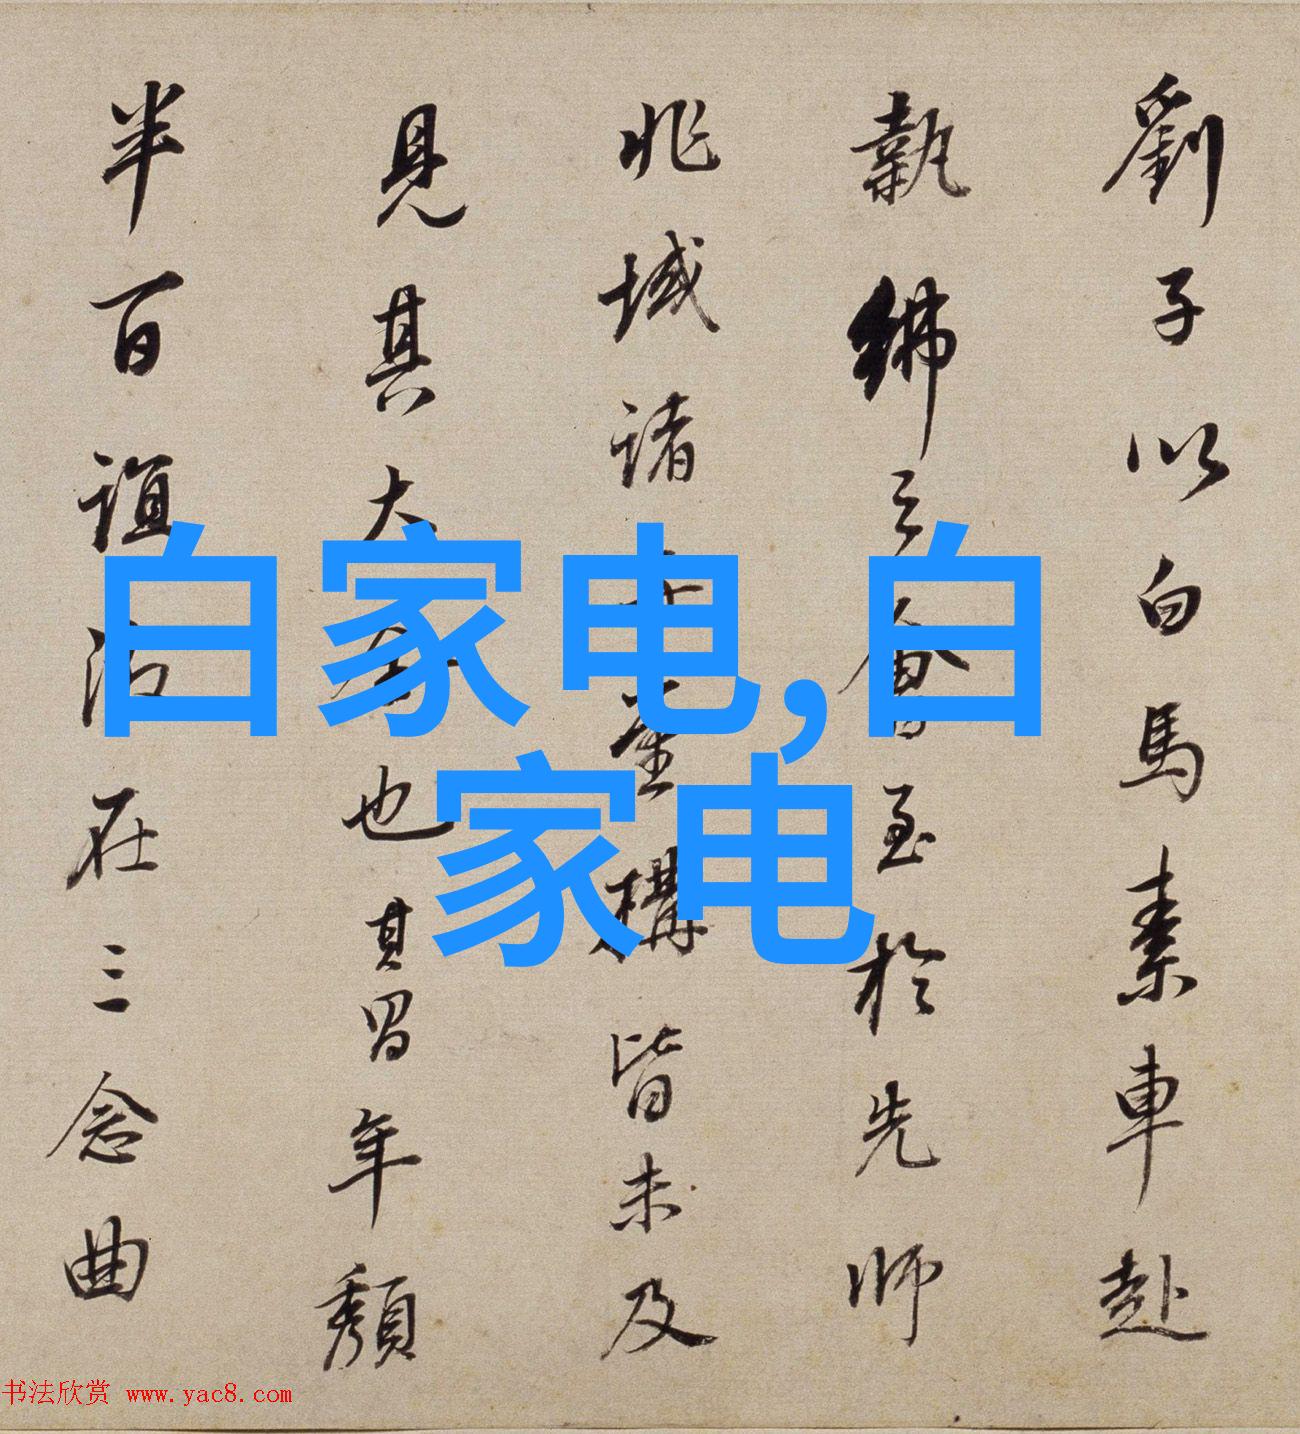 劉子以白馬素車赴
執紼之會至於先師
兆域諸 堂構皆未及
見其大 也其曷年頹
半百誼 在三念曲
白家电,白
家电
书法欣赏 www.yac8.com